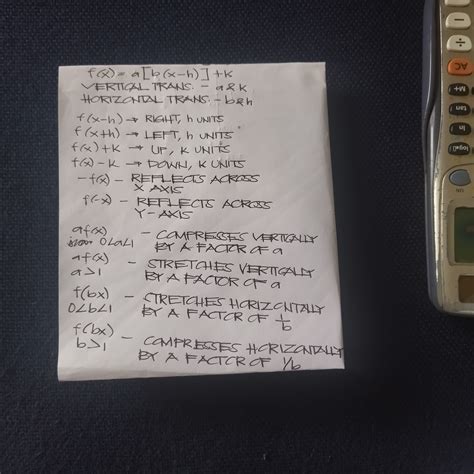 f(x) = a[b(x-h)]+k
VERTICAL TRANS. - a & k
HORIZONTAL TRANS. - b & h
f(x-h) → RIGHT, h UNITS
f(x+h) → LEFT, h UNITS
f(x)+k → UP, k UNITS
f(x)-k → DOWN, k UNITS
-f(x) - REFLECTS ACROSS
X AXIS
f(-x) - REFLECTS ACROSS
Y-AXIS
af(x) - COMPRESSES VERTICALLY
0<a<1 BY A FACTOR OF a
af(x) - STRETCHES VERTICALLY
a>1 BY A FACTOR OF a
f(bx) - STRETCHES HORIZONTALLY
0<b<1 BY A FACTOR OF 1/b
f(bx) - COMPRESSES HORIZONTALLY
b>1 BY A FACTOR OF 1/b
AC
M+
tan
ln